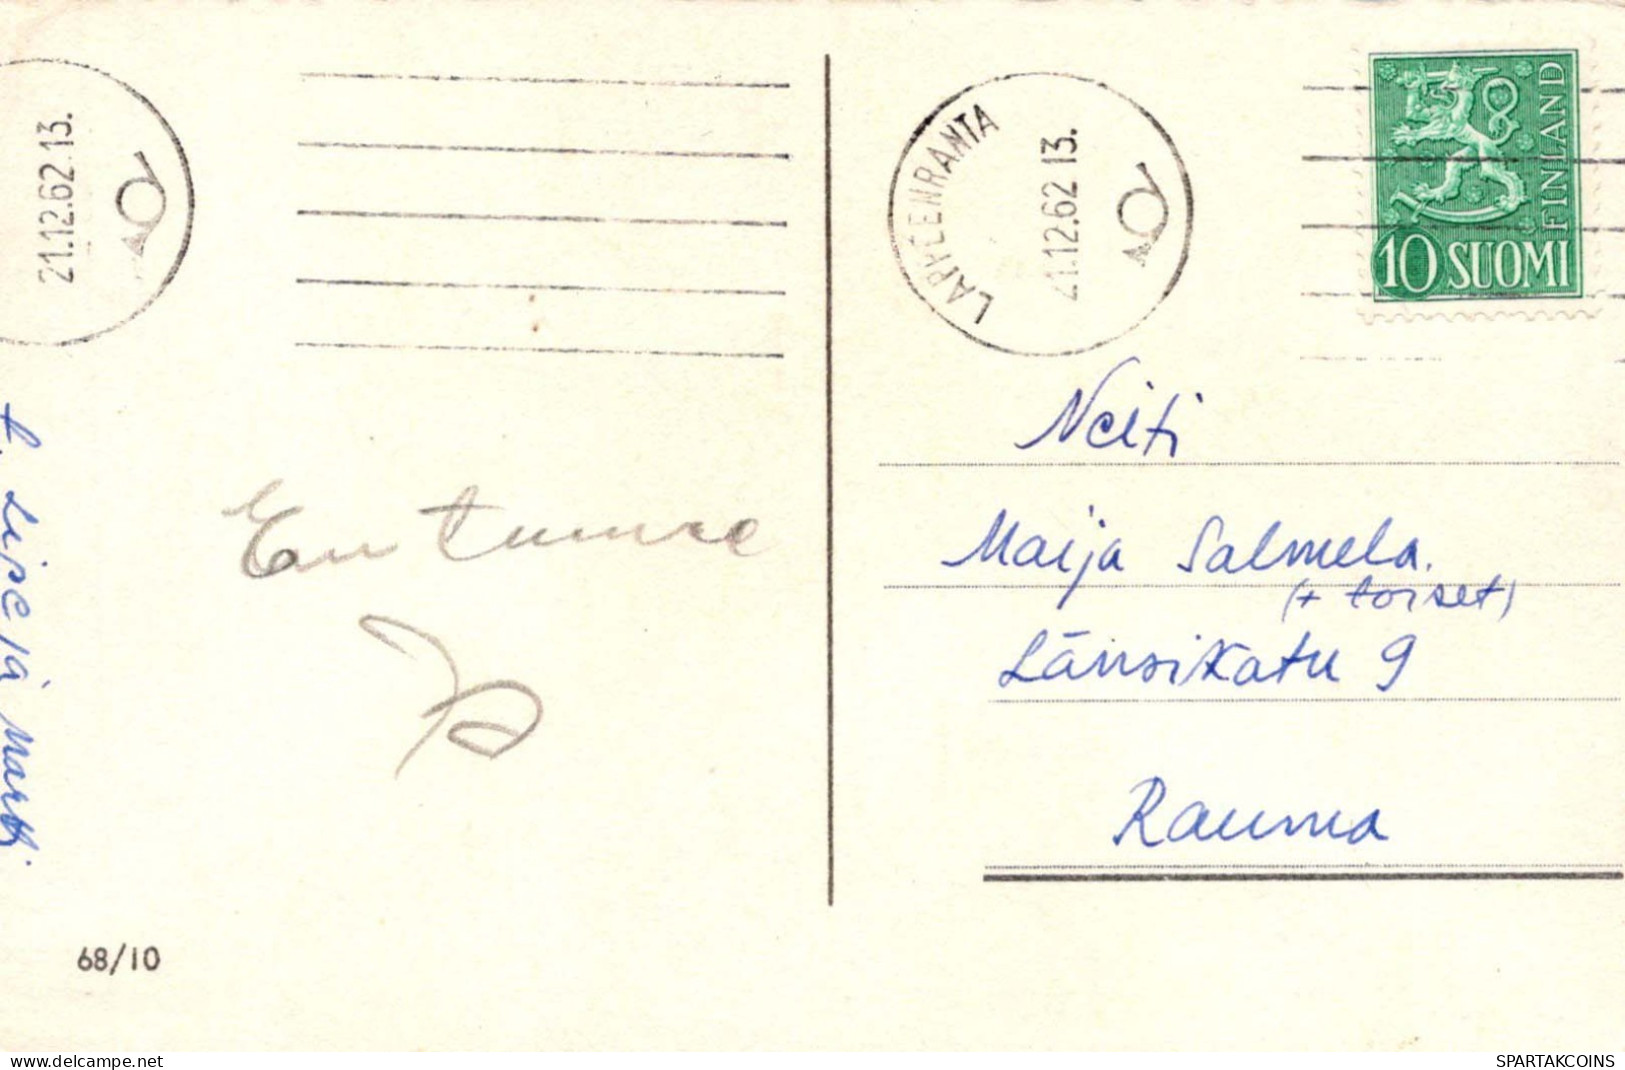 21.12.62.13.
LAPPEENRANTA
21.12.62.13.
FINLAND
10 SUOMI
Neiti
Maija Salmela.
(+ toiset)
Länsikatu 9
Rauma
En tunne
t. Liisa ja Martti
68/10
www.delcampe.net
SPARTAKCOINS